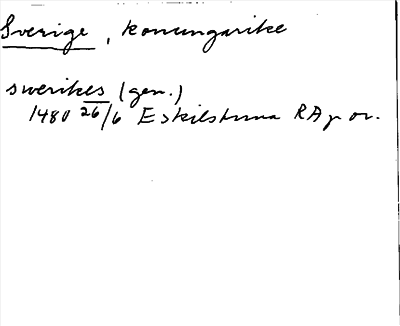 Sverige, konungarike
swerikes (gen.)
1480 26/6 Eskilstuna RAp or.